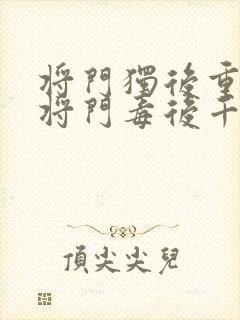 將門獨後重
將門毒後千
頂尖尖兒